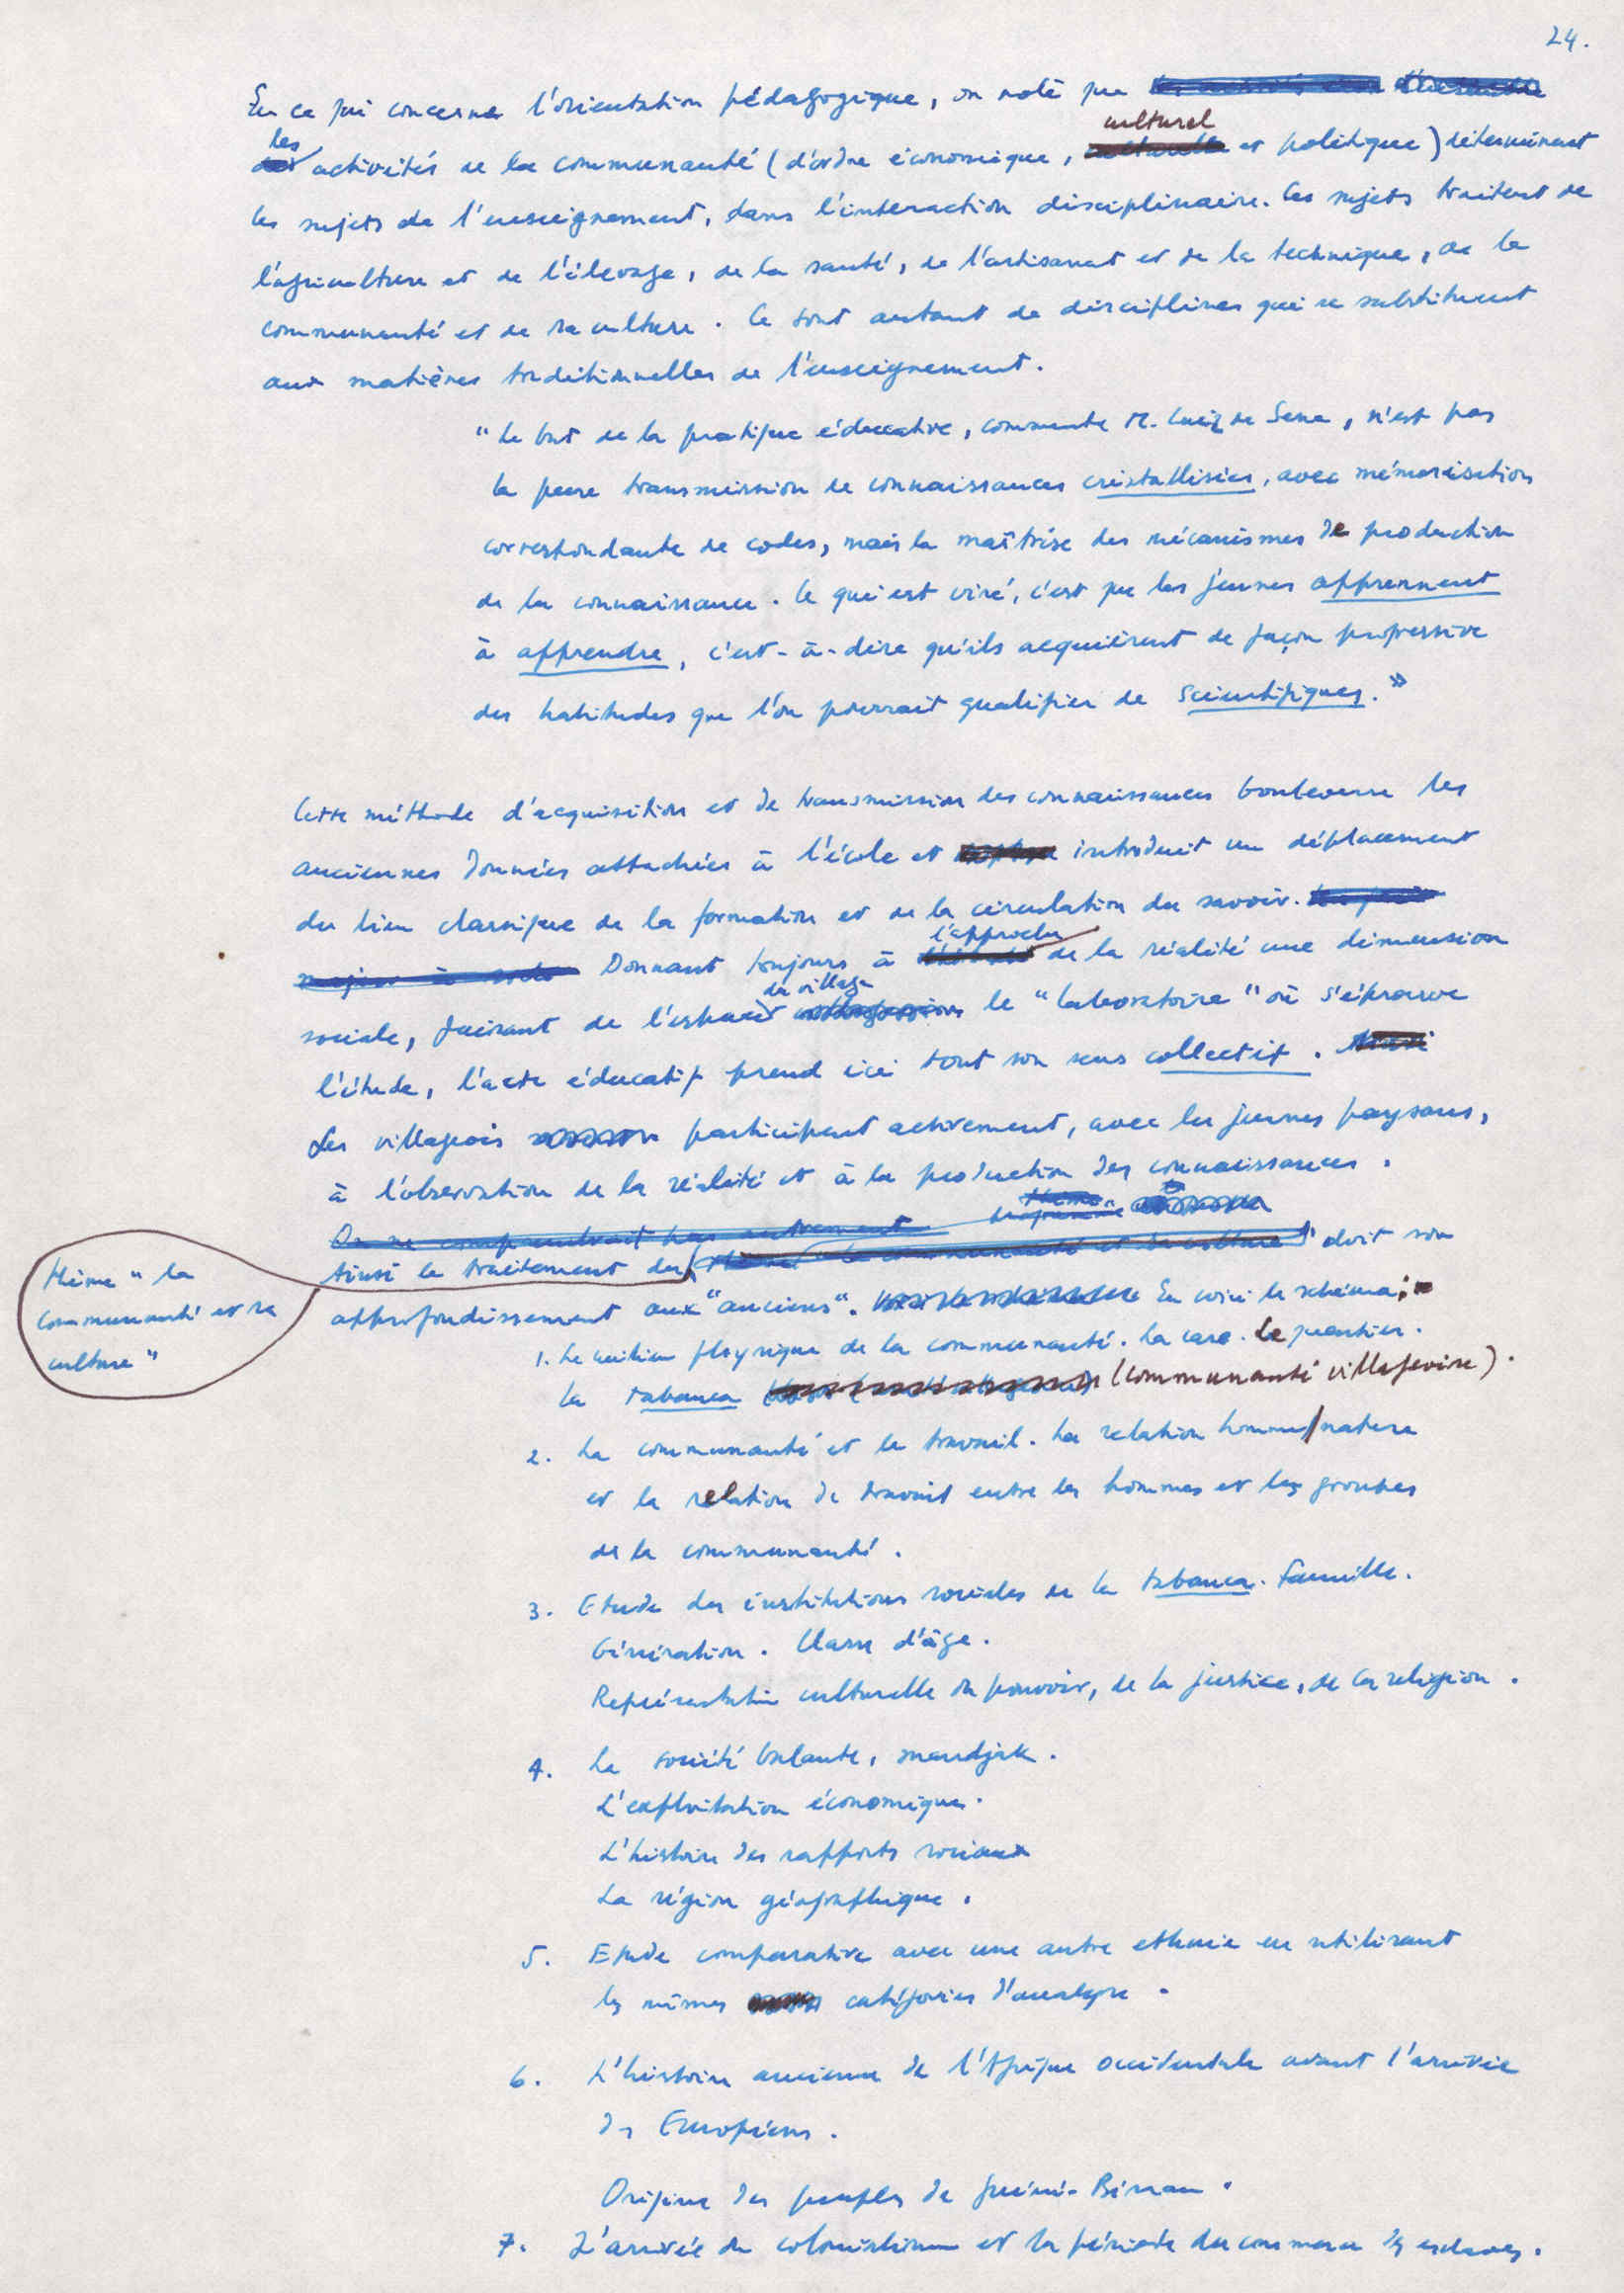 24.
En ce qui concerne l'orientation pédagogique, on note que
culturel
les activités de la communauté (d'ordre économique, et politique) déterminent
les sujets de l'enseignement, dans l'interaction disciplinaire. Ces sujets traitent de
l'agriculture et de l'élevage, de la santé, de l'artisanat et de la technique, de la
communauté et de sa culture. Ce sont autant de disciplines qui se substituent
aux matières traditionnelles de l'enseignement.
"Le but de la pratique éducative, commente M. Luiz de Sena, n'est pas
la pure transmission de connaissances cristallisées, avec mémorisation
correspondante de codes, mais la maîtrise des mécanismes de production
de la connaissance. Ce qui est visé, c'est que les jeunes apprennent
à apprendre, c'est-à-dire qu'ils acquièrent de façon progressive
des habitudes que l'on pourrait qualifier de scientifiques."
Cette méthode d'acquisition et de transmission des connaissances bouleverse les
anciennes données attachées à l'école et introduit un déplacement
du lieu classique de la formation et de la circulation du savoir.
l'approche
Donnant toujours à de la réalité une dimension
du village
sociale, faisant de l'espace le "laboratoire" où s'éprouve
l'étude, l'acte éducatif prend ici tout son sens collectif.
Les villageois participent activement, avec les jeunes paysans,
à l'observation de la réalité et à la production des connaissances.
On ne comprendrait pas autrement
Ainsi le traitement du doit son
thème "la
communauté et sa
culture"
approfondissement aux "anciens". En voici le schéma:
1. Le milieu physique de la communauté. La case. Le quartier.
La tabanca (communauté villageoise).
2. La communauté et le travail. La relation homme/nature
et la relation de travail entre les hommes et les groupes
de la communauté.
3. Etude des institutions sociales de la tabanca. Famille.
Génération. Classe d'âge.
Représentation culturelle du pouvoir, de la justice, de la religion.
4. La société balante, mandjak.
L'exploitation économique.
L'histoire des rapports sociaux
La région géographique.
5. Etude comparative avec une autre ethnie en utilisant
les mêmes catégories d'analyse.
6. L'histoire ancienne de l'Afrique occidentale avant l'arrivée
des Européens.
Origine des peuples de Guinée-Bissau.
7. L'arrivée du colonialisme et la période du commerce des esclaves.